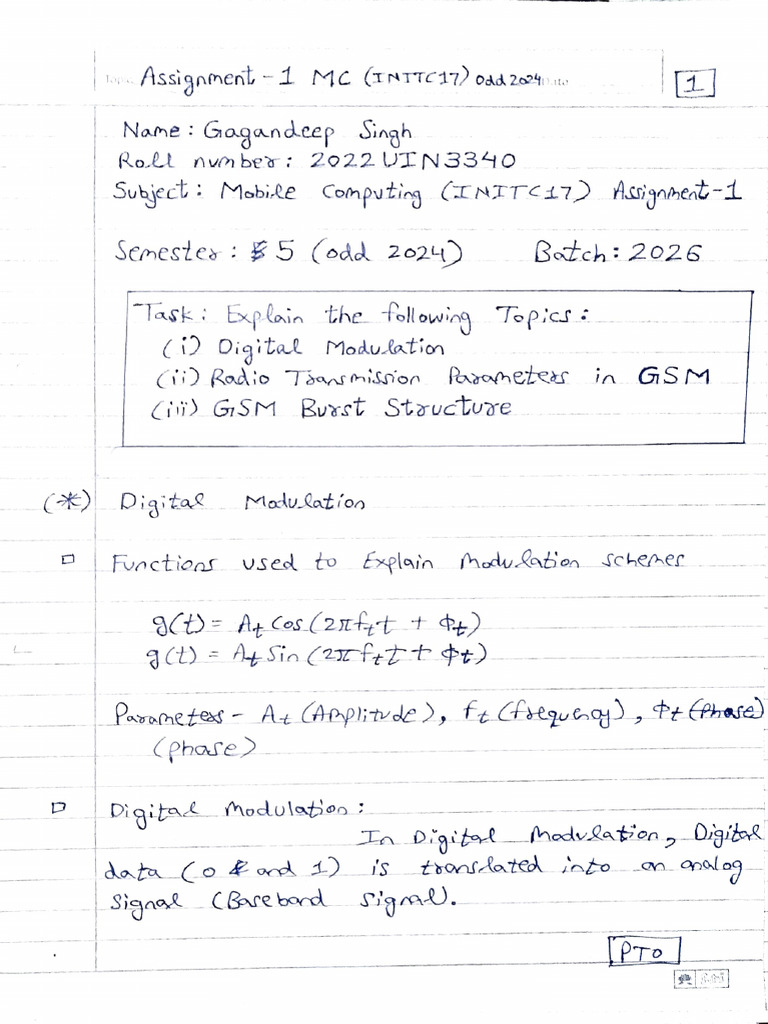 Assignment-1 MC (INITC17) Odd 2024
1
Name: Gagandeep Singh
Roll number: 2022UIN3340
Subject: Mobile Computing (INITC17) Assignment-1
Semester: 5 (odd 2024) Batch: 2026
Task: Explain the following Topics:
(i) Digital Modulation
(ii) Radio Transmission Parameters in GSM
(iii) GSM Burst Structure
(*) Digital Modulation
Functions used to Explain Modulation schemes
g(t) = At Cos(2πftt + Φt)
g(t) = At Sin(2πftt + Φt)
Parameters - At (Amplitude), ft (frequency), Φt (phase)
(phase)
Digital Modulation:
In Digital Modulation, Digital
data (0 and 1) is translated into an analog
Signal (Baseband Signal).
PTO